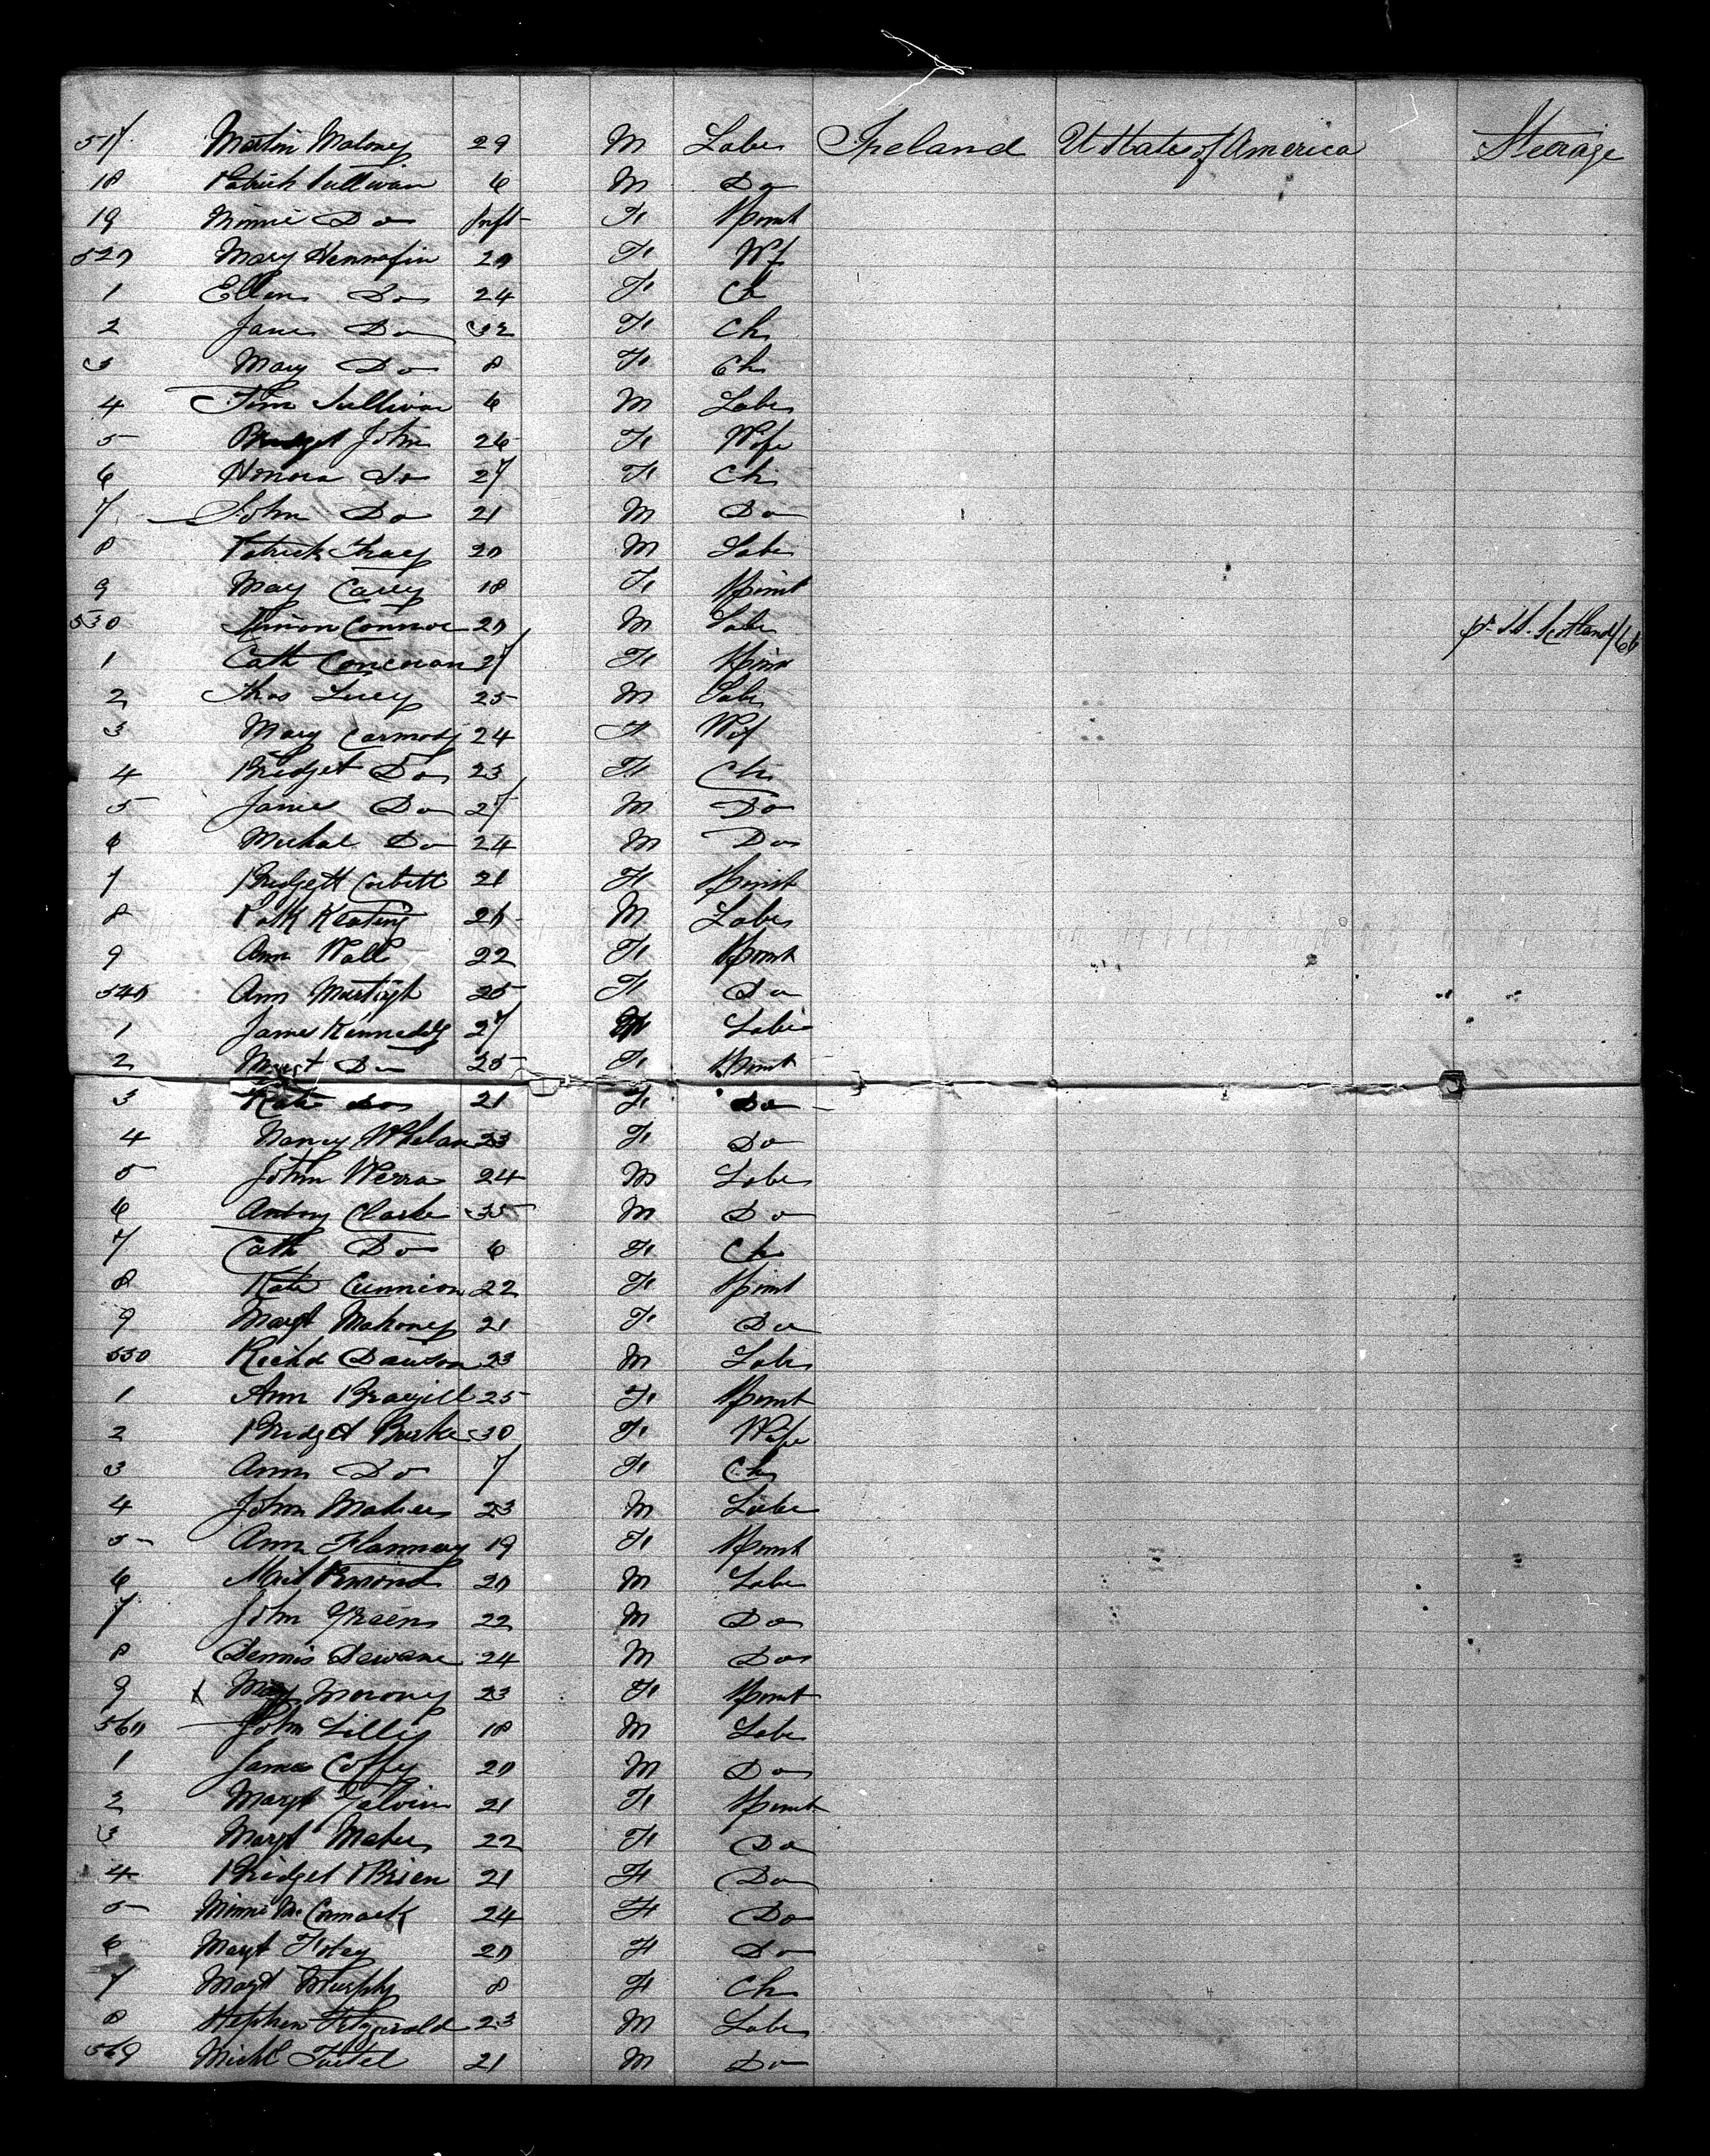 517 Martin Maloney 29 M Labr Ireland U States of America Steerage
18 Patrick Sullivan 6 M Do
19 Minnie Do Inft F Spinst
520 Mary Hennafin 20 F Wf
1 Ellen Do 24 F Ch
2 Jane Do 32 F Ch
3 Mary Do 8 F Ch
4 Tim Sullivan 6 M Labr
5 Bridget John 26 F Wife
6 Honora Do 27 F Ch
7 John Do 21 M Do
8 Patrick Tracy 20 M Labr
9 May Carey 18 F Spinst
530 Simon Connor 20 M Labr
1 Cath Corcoran 27 F Spins
2 Thos Lucy 25 M Labr
3 Mary Carmody 24 F Wif
4 Bridget Do 23 F Ch
5 James Do 27 M Do
6 Michal Do 24 M Do
7 Bridgett Corbett 21 F Spinst
8 Patk Keating 26 M Labr
9 Ann Wall 22 F Spinst
540 Ann Murtagh 25 F Do
1 James Kennedy 27 M Labr
2 Do 25 F Spinst
3 Kate Do 21 F Do
4 Nancy Whelan 23 F Do
5 John 24 M Labr
6 Antony Clarke 35 M Do
7 Cath Do 6 F Ch
8 Kate Cunnion 22 F Spinst
9 Margt Mahoney 21 F Do
550 Richd Dawson 23 M Labr
1 Ann 25 F Spinst
2 Bridget Burke 30 F Wife
3 Ann Do 7 F Ch
4 John Maher 23 M Labr
5 Ann Flannery 19 F Spinst
6 20 M Labr
7 John Green 22 M Do
8 Dennis Dewane 24 M Do
9 Moroney 23 F Spinst
560 John Lillis 18 M Labr
1 James Coffy 20 M Do
2 Margt Galvin 21 F Spinst
3 Margt Maher 22 F Do
4 Bridget OBrien 21 F Do
5 Minnie McCormack 24 F Do
6 Margt Foley 20 F Do
7 Margt Murphy 8 F Ch
8 Stephen Fitzgerald 23 M Labr
569 Michl 21 M Do